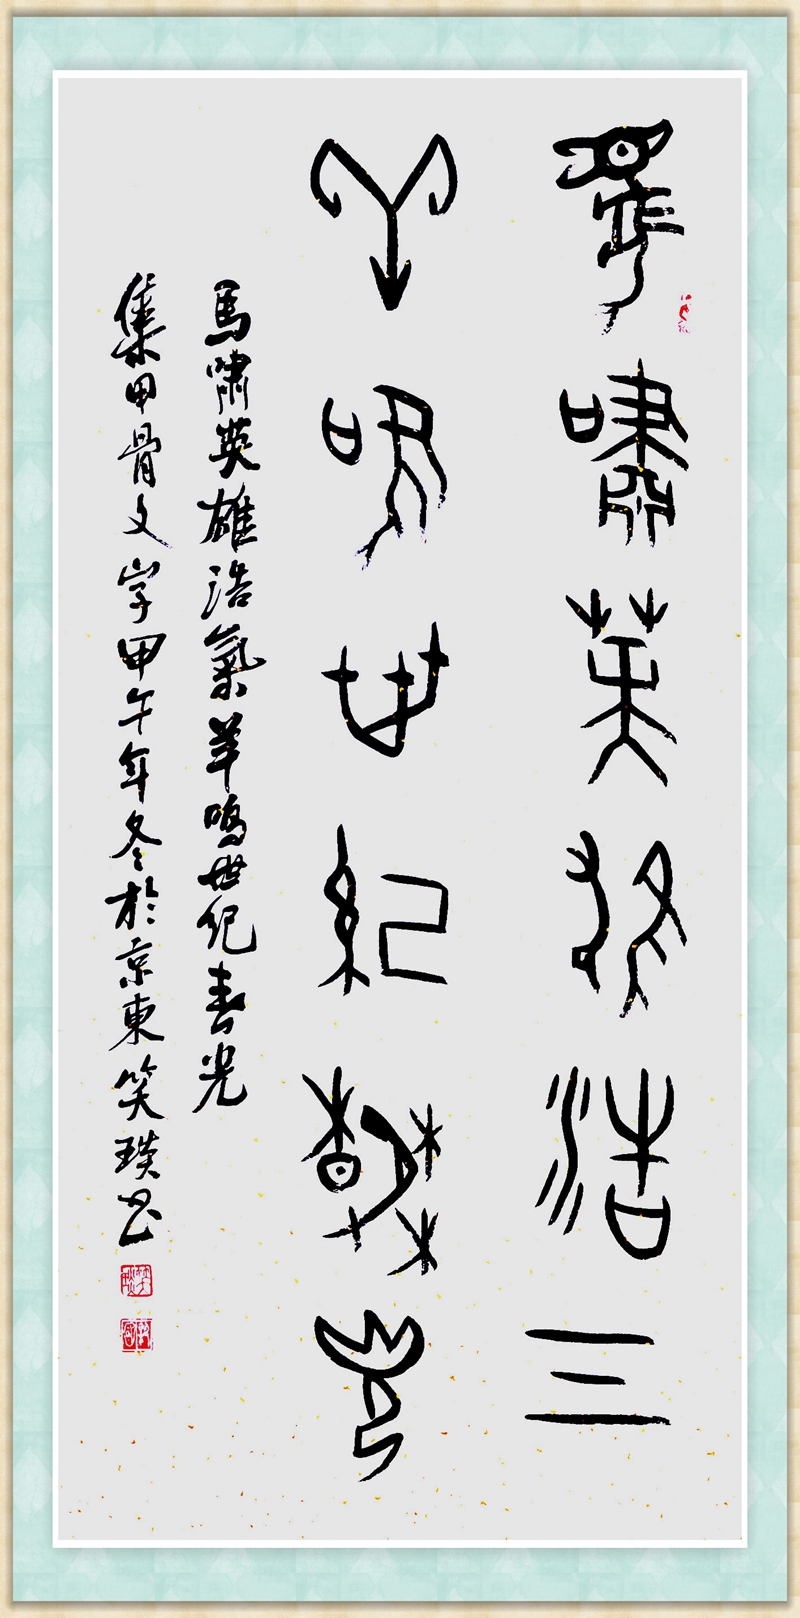 馬嘯英雄浩气
羊鳴世紀春光
馬嘯英雄浩氣羊鳴世紀春光
集甲骨文字甲午年冬於京東笑琰书